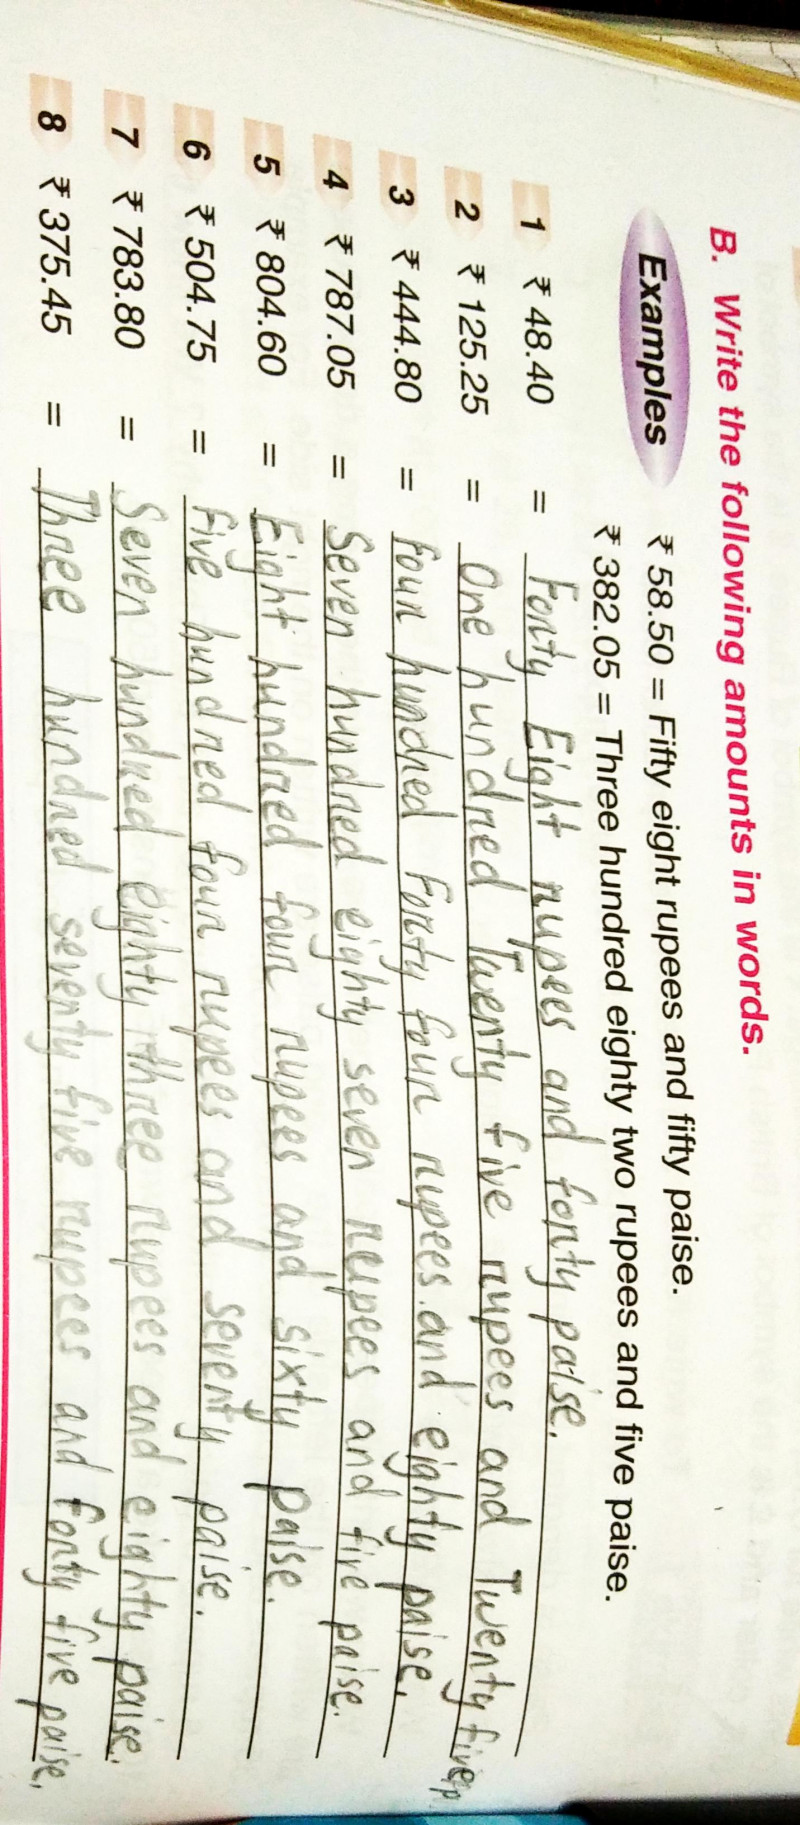 B. Write the following amounts in words.
Examples ₹ 58.50 = Fifty eight rupees and fifty paise.
₹ 382.05 = Three hundred eighty two rupees and five paise.
1 ₹ 48.40 = Forty Eight rupees and forty paise.
2 ₹ 125.25 = One hundred Twenty five rupees and Twenty five p
3 ₹ 444.80 = four hundred Forty four rupees and eighty paise.
4 ₹ 787.05 = Seven hundred eighty seven rupees and five paise.
5 ₹ 804.60 = Eight hundred four rupees and sixty paise.
6 ₹ 504.75 = Five hundred four rupees and seventy paise.
7 ₹ 783.80 = Seven hundred eighty three rupees and eighty paise.
8 ₹ 375.45 = Three hundred seventy five rupees and forty five paise.